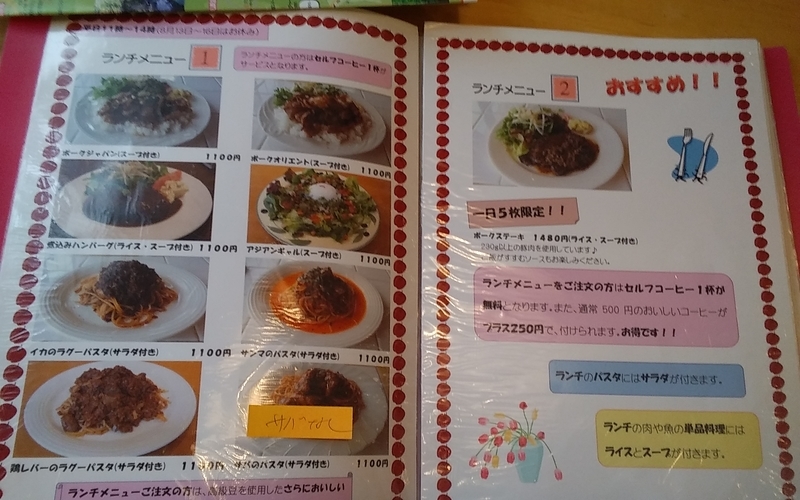 平日11時～14時(8月13日～16日はお休み)
ランチメニュー 1
ランチメニューの方はセルフコーヒー1杯が
サービスとなります。
ポークジャパン(スープ付き) 1100円
ポークオリエント(スープ付き) 1100円
煮込みハンバーグ(ライス・スープ付き) 1100円
アジアンギャル(スープ付き) 1100円
イカのラグーパスタ(サラダ付き) 1100円
サンマのパスタ(サラダ付き) 1100円
サバなし
鶏レバーのラグーパスタ(サラダ付き) 1100円
サバのパスタ(サラダ付き) 1100円
ランチメニューご注文の方は、高級豆を使用したさらにおいしい
ランチメニュー 2 おすすめ！！
一日5枚限定！！
ポークステーキ 1480円(ライス・スープ付き)
230g以上の豚肉を使用しています♪
ご飯がすすむソースもお楽しみください。
ランチメニューをご注文の方はセルフコーヒー1杯が
無料となります。また、通常 500 円のおいしいコーヒーが
プラス250円で、付けられます。お得です！！
ランチのパスタにはサラダが付きます。
ランチの肉や魚の単品料理には
ライスとスープが付きます。